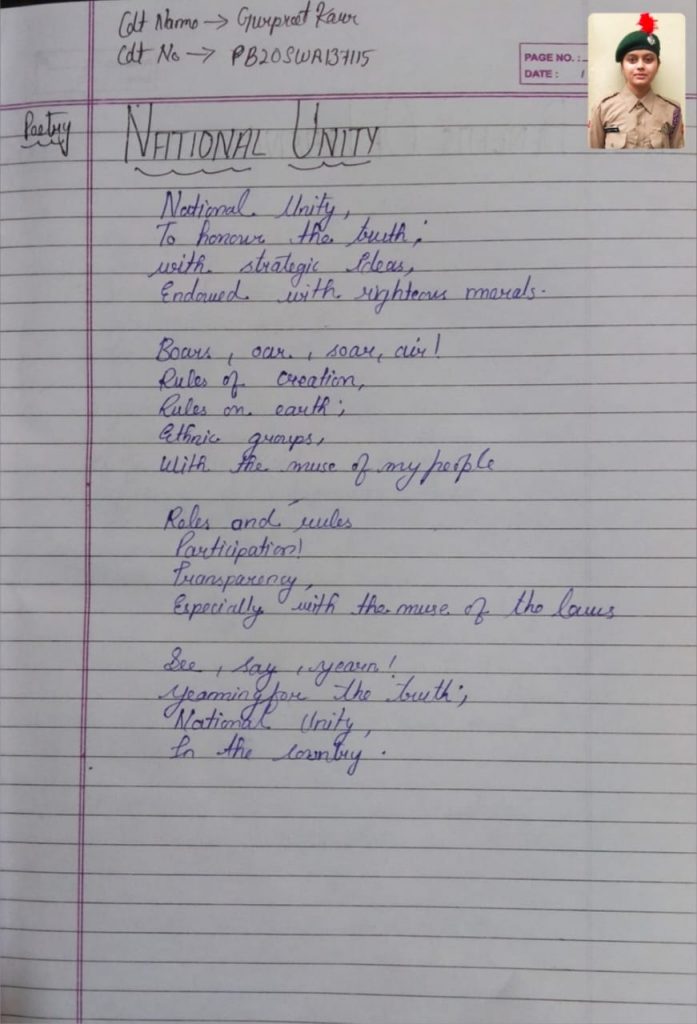 Cdt Name → Gurpreet Kaur
Cdt No → PB20SWA137115
PAGE NO. :
DATE : /
Poetry
NATIONAL UNITY
National Unity,
To honour the truth;
with strategic ideas,
Endowed with righteous morals.
Boars, oar, soar, air!
Rules of creation,
Rules on earth;
Ethnic groups,
With the muse of my people
Roles and rules
Participation!
Transparency,
Especially with the muse of the laws
See, say, yearn!
yearning for the truth;
National Unity,
In the country.